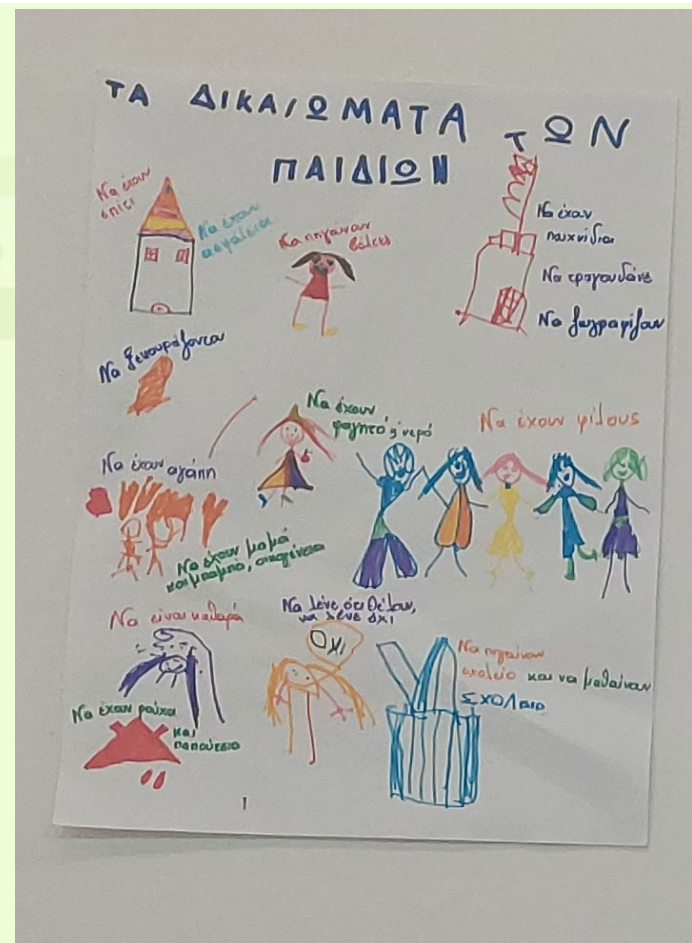 ΤΑ ΔΙΚΑΙΩΜΑΤΑ ΤΩΝ
ΠΑΙΔΙΩΝ
Να έχουν
σπίτι
Να έχουν
ασφάλεια
Να πηγαίνουν
βόλτες
Να έχουν
παιχνίδια
Να τραγουδάνε
Να ζωγραφίζουν
Να ξεκουράζονται
Να έχουν
φαγητό & νερό
Να έχουν φίλους
Να έχουν αγάπη
Να έχουν μαμά
και μπαμπά, οικογένεια
Να είναι καθαρά
Να λένε ότι θέλουν,
να λένε όχι
ΟΧΙ
Να πηγαίνουν
σχολείο και να μαθαίνουν
ΣΧΟΛΙΟ
Να έχουν ρούχα
και
παπούτσια